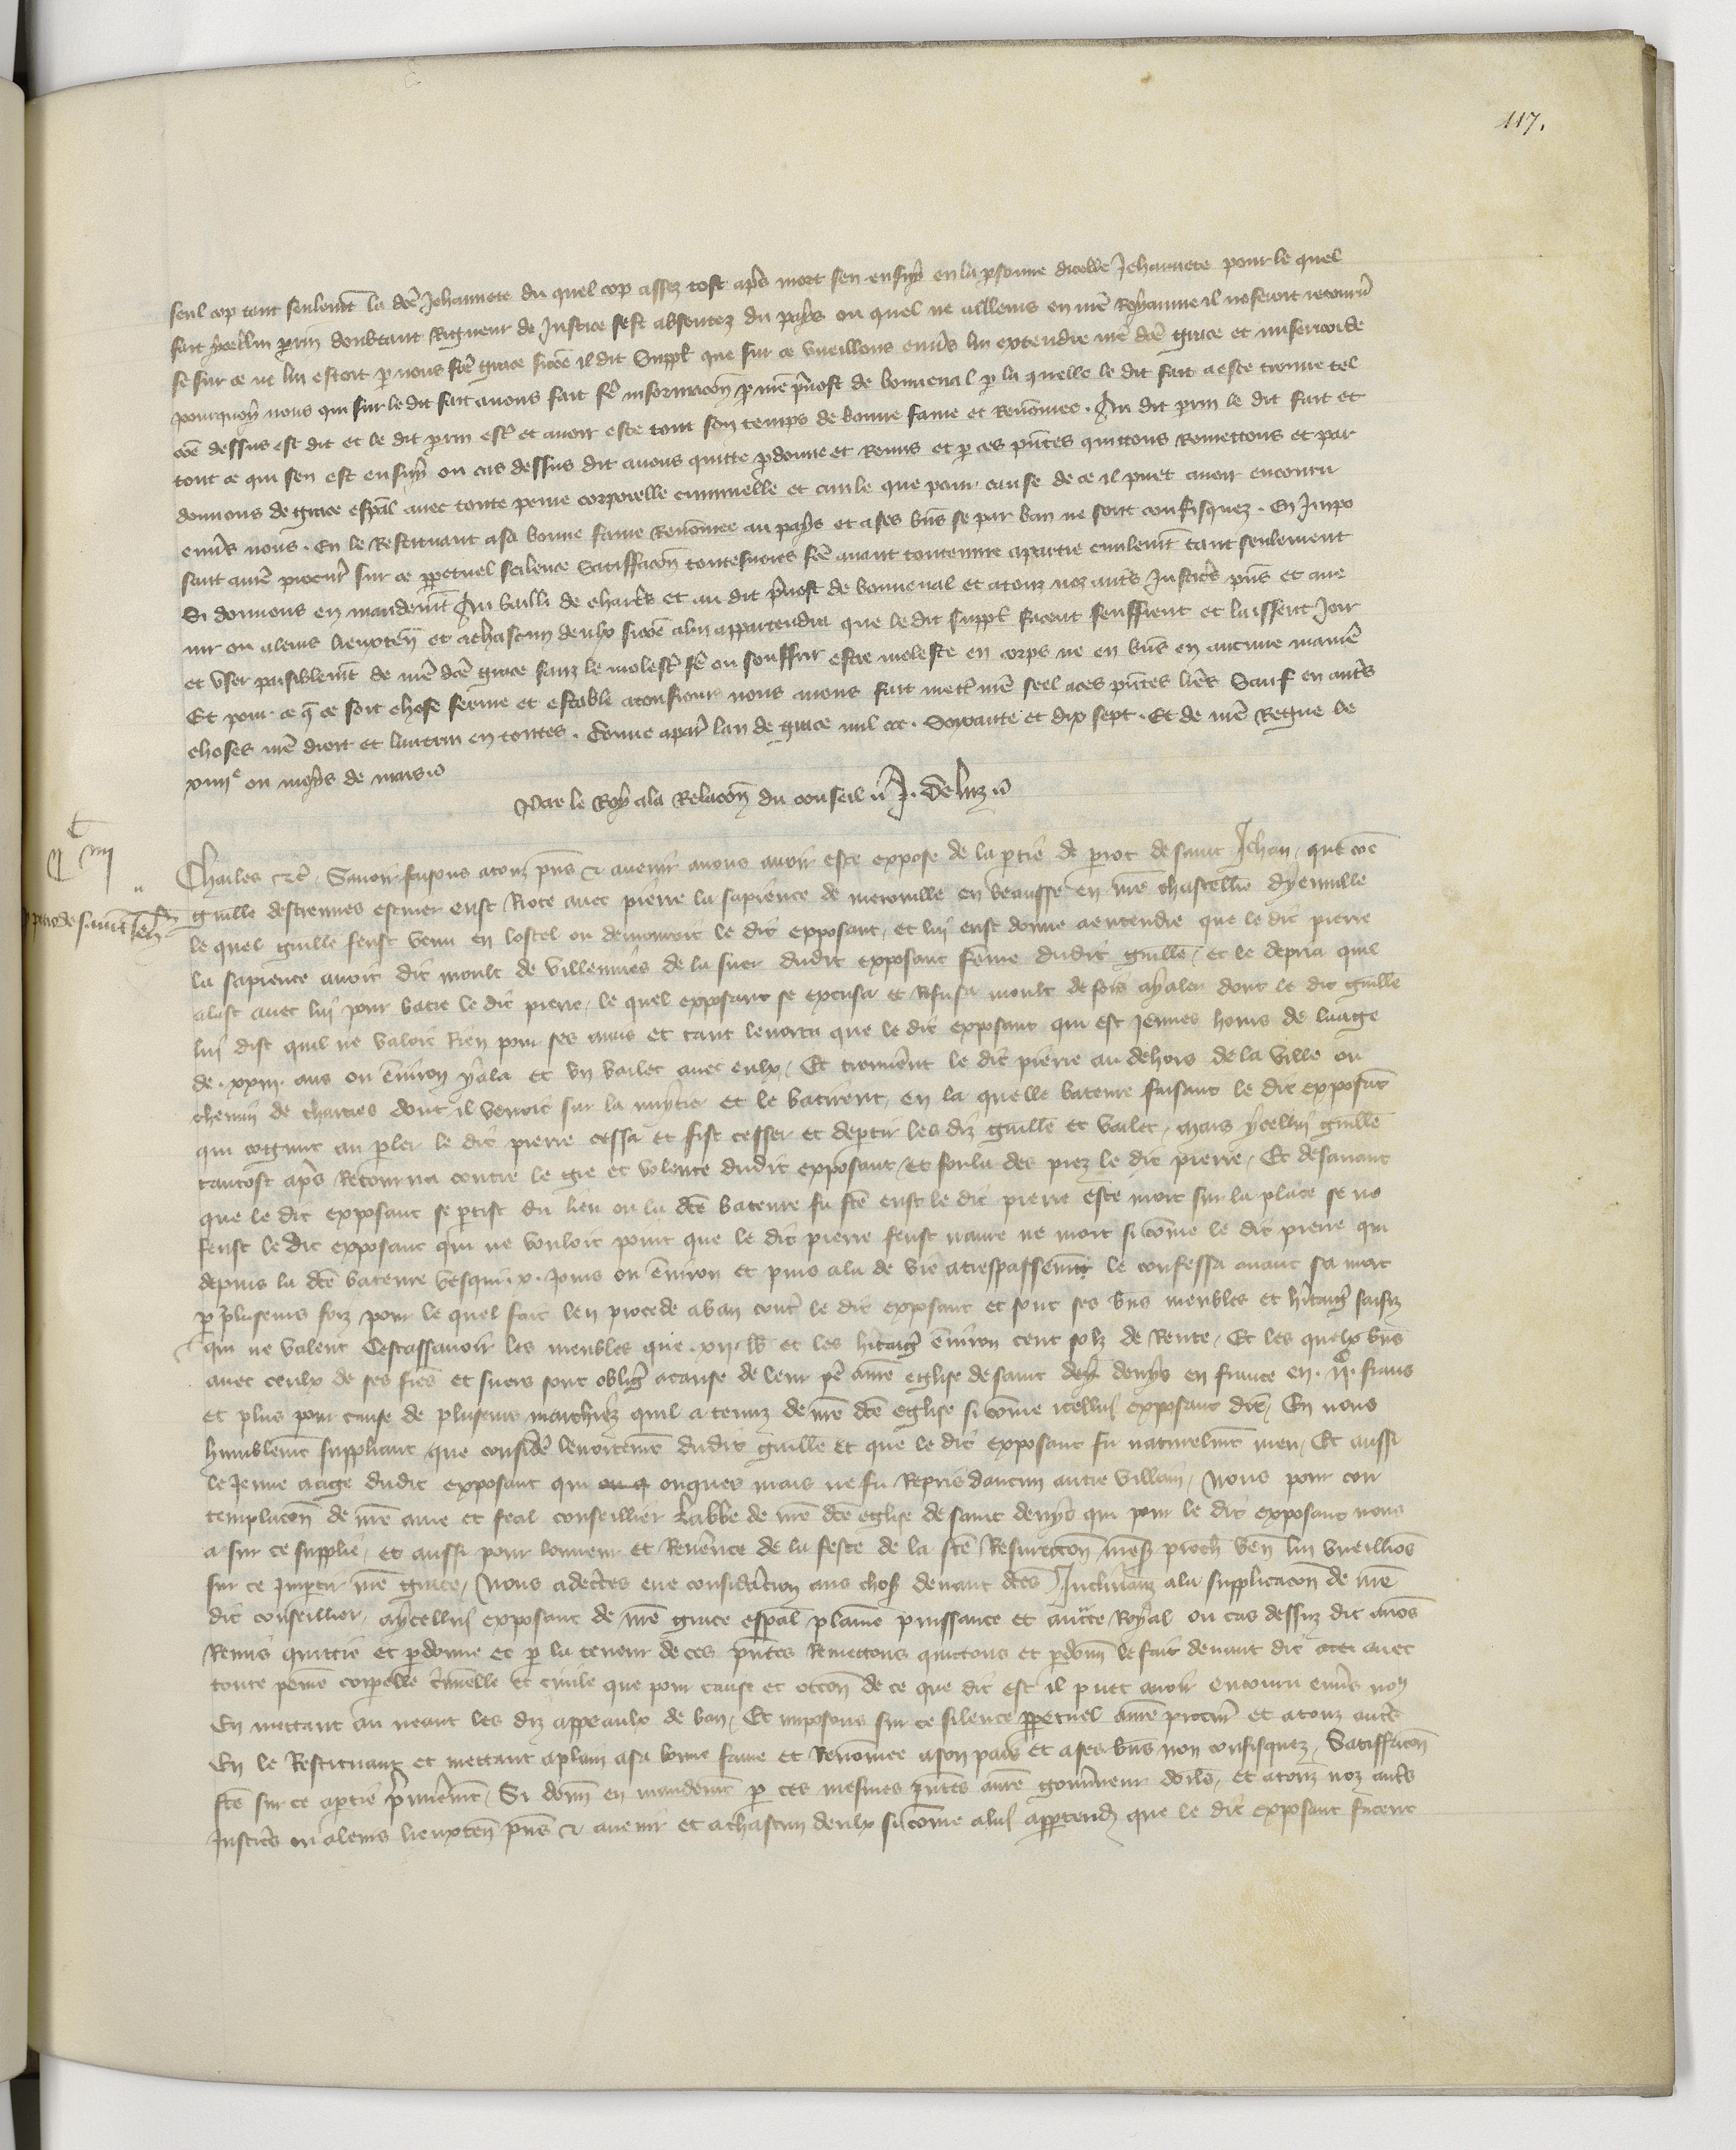 117.
seul cop tant seulemt la dce Jehannete du quel cop assez tost aps mort sen ensuy en la psonne dicelle Jehannete pour le quel
fait ycellui Perrin doubtant Rigueur de Justice sest absentez du pays ou quel ne ailleurs en nre Royaume il noseroit retourn
se sur ce ne lui estoit p nous fce grace sicoe il dit Suppl que sur ce vueillons enuers lui extendre nre dce grace et misericorde
pourquoy nous qui sur le dit fait auons fait fe informacon p nre puost de bonneual p la quelle le dit fait a este trouue tel
coe dessus est dit et le dit prin est et auoir este tout son temps de bonne fame et Renomee . Au dit prin le dit fait et
tout ce qui sen est ensuy ou cas dessus dit auons quitte pdonne et Remis et p ces pntes quittons Remettons et par
donnons de grace espal auec toute peine corporelle criminelle et ciuile que pour cause de ce il puet auoir encouru
enuers nous . En le Restituant a sa bonne fame Renomee au pays et a ses bns se par ban ne sont confisquez . En Impo
sant a nre procur sur ce ppetuel scilence Satiffacon toutesuoies fce auant toute euure a partie ciuilemt tant seulement
Si donnons en mandemt Au bailli de chartres et au dit puost de bonneual et a touz noz autres Justiciers pns et aue
nir ou a leurs lieuxten et a chascun deulx sicoe a lui appartendra que le dit suppl facent seuffrent et laissent Joir
et vser paisiblemt de nre dce grace sanz le molester fe ou souffrir estre moleste en corps ne en bns en aucune maniere
Et pour ce q ce soit chose ferme et estable a tousiours nous auons fait mettre nre seel a ces pntes lres Sauf en autres
choses nre droit et lautrui en toutes . Donne a paris lan de grace mil ccc . Soixante et dix sept . Et de nre Regne le
xiiije ou moys de mars
Par le Roy a la Relacon du conseil J. De luz
Charles etc . Sauoir faisons a touz pns & auenir a nous auoir este expose de la ptie de prot de saint Jehan , que coe
guille destiennes escuier eust Riote auec pierre la sapience de merouille en beausse en nre chastellie dyenuille
prot de saint Jehan
le quel guille feust venu en lostel ou demouroit le dit exposant , et lui eust donne a entendre que le dit pierre
la sapience auoit dit moult de villennies de la suer dudit exposant feme dudit guille , et le depria quil
alast auec lui pour batre le dit pierre , le quel exposant se excusa et Refusa moult de fois a y aler dont le dit guille
lui dist quil ne valoit Rien pour ses amis et tant lenorta que le dit exposant qui est Jeunes homs de laage
de . xxiii . ans ou enuiron y ala et vn vallet auec eulx , Et trouuerent le dit pierre au dehors de la ville ou
chemin de chartres dont il venoit sur la nuytie et le batirent , en la quelle bateure faisant le dit exposant
qui cognut au pler le dit pierre cessa et fist cesser et departir les diz guille et vallet , mais ycellui guille
tantost aps Retourna contre le gre et volente dudit exposant , et foula des piez le dit pierre , Et desauant
que le dit exposant se ptist du lieu ou la dce bateure fu fce eust le dit pierre este mort sur la place se ne
feust le dit exposant qui ne vouloit point que le dit pierre feust naure ne mort si come le dit pierre qui
depuis la dce bateure vesqui . x . Jours ou enuiron et puis ala de vie a trespassemt le confessa auant sa mort
p pluseurs foiz pour le quel fait len procede a ban contre le dit exposant et sont ses bns meubles et heritaiges saisiz
qui ne valent Cestassauoir les meubles que . xij . lb et les heritaiges enuiron cent solz de Rente , Et les quelx bns
auec ceulx de ses freres et suers sont obligez a cause de leur pe a nre eglise de saint denys en france en . iic . frans
et plus pour cause de pluseurs marchiez quil a tenuz de nre dce eglise si come icellui exposant dit , En nous
humblemt suppliant que consider lenortemt dudit guille et que le dit exposant fu naturelmt meu , Et aussi
le Jeune aage dudit exposant qui onques mais ne fu Repris daucun autre villain , Nous pour con
templacon de nre ame et feal conseillier labbe de nre dce eglise de saint denys qui pour le dit exposant nous
a sur ce supplie , et aussi pour lonneur et Reuerence de la feste de la ste Resurrecton prochn ven lui vueillions
sur ce Impartir nre grace , Nous adecertes eue consideracion aus choses deuant dces Inclinans a la supplicacon de nre
dit conseillier , a ycellui exposant de nre grace espal plaine puissance et aucte Royal ou cas dessuz dit auons
Remis quittie et pdonne et p la teneur de ces pntes Remettons quittons et pdonn le fait deuant dit auec
toute peine corpelle criminelle et ciuile que pour cause et occon de ce que dit est il puet auoir encouru enuers nous
En mettant au neant les diz appeaulx de ban , Et imposons sur ce silence ppetuel a nre procur et a touz autres
En le Restituant et mettant a plain a sa bonne fame et Renomee a son pais et a ses bns non confisquez , Satiffacon
fce sur ce a ptie premieremt , Si donn en mandemt p ces mesmes pntes a nre gouuerneur dorls , et a touz noz autres
Justiciers ou a leurs lieuxten pns & auenir et a chascun deulx si come a lui appartendra que le dit exposant facent